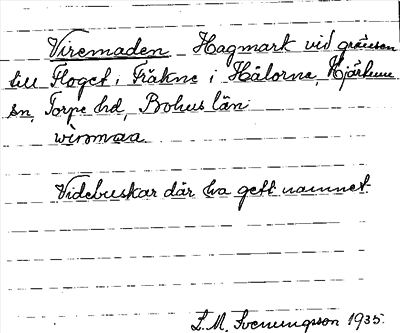 Viremaden Hagmark vid gränsen
till Floget i Fräkne i Hålorna, Hjärtums
sn, Torpe hd, Bohus län
Videbuskar där ha gett namnet.
L. M. Svenungsson 1935.